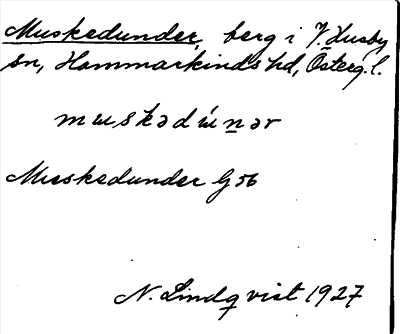 Muskedunder, berg i V. Husby
sn, Hammarkinds hd, Österg. l.
mɯskədɯ́nər
Muskedunder G 56
N. Lindqvist 1927